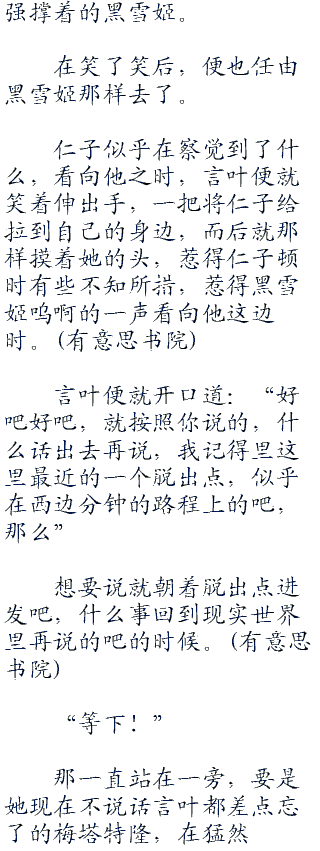 强撑着的黑雪姬。
在笑了笑后，便也任由
黑雪姬那样去了。
仁子似乎在察觉到了什
么，看向他之时，言叶便就
笑着伸出手，一把将仁子给
拉到自己的身边，而后就那
样摸着她的头，惹得仁子顿
时有些不知所措，惹得黑雪
姬呜啊的一声看向他这边
时。(有意思书院)
言叶便就开口道：“好
吧好吧，就按照你说的，什
么话出去再说，我记得里这
里最近的一个脱出点，似乎
在西边分钟的路程上的吧，
那么”
想要说就朝着脱出点进
发吧，什么事回到现实世界
里再说的吧的时候。(有意思
书院)
“等下！”
那一直站在一旁，要是
她现在不说话言叶都差点忘
了的梅塔特隆，在猛然